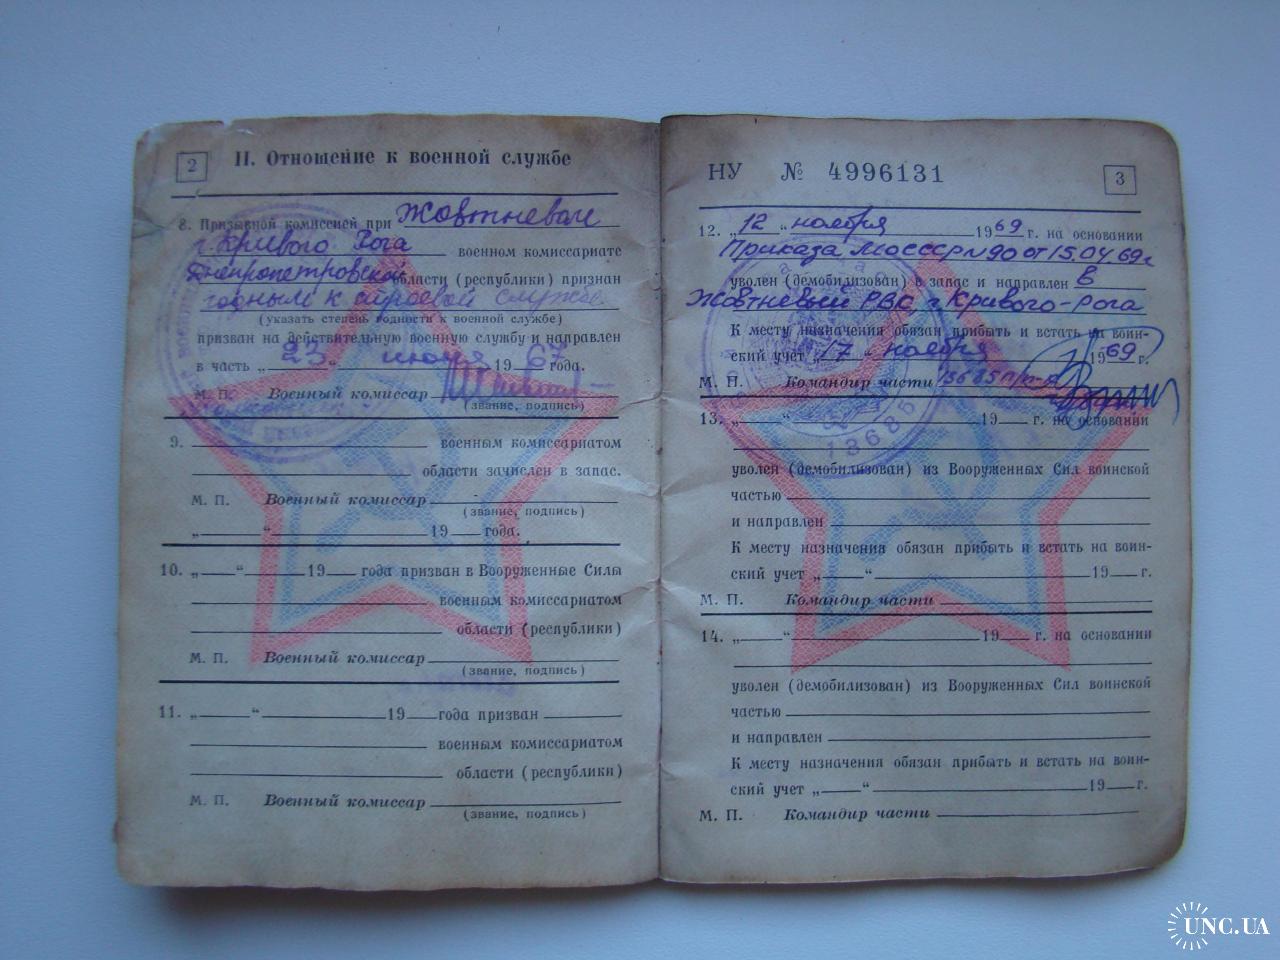 2
II. Отношение к военной службе
8. Призывной комиссией при Жовтневом
г. Кривого Рога военном комиссариате
Днепропетровской области (республики) признан
годным к строевой службе
(указать степень годности к военной службе)
призван на действительную военную службу и направлен
в часть „ 23 “ июня 19 67 года.
М. П. Военный комиссар
(звание, подпись)
9. военным комиссариатом
области зачислен в запас.
М. П. Военный комиссар
(звание, подпись)
„ “ 19 года.
10. „ “ 19 года призван в Вооруженные Силы
военным комиссариатом
области (республики)
М. П. Военный комиссар
(звание, подпись)
11. „ “ 19 года призван
военным комиссариатом
области (республики)
М. П. Военный комиссар
(звание, подпись)
НУ № 4996131
3
12. „ 12 “ ноября 19 69 г. на основании
Приказа МО СССР N 90 от 15.04.69г
уволен (демобилизован) в запас и направлен в
Жовтневый РВС, г. Кривого-Рога
К месту назначения обязан прибыть и встать на воин-
ский учет „ 17 “ ноября 19 69 г.
М. П. Командир части
13. „ “ 19 г. на основании
уволен (демобилизован) из Вооруженных Сил воинской
частью
и направлен
К месту назначения обязан прибыть и встать на воин-
ский учет „ “ 19 г.
М. П. Командир части
14. „ “ 19 г. на основании
уволен (демобилизован) из Вооруженных Сил воинской
частью
и направлен
К месту назначения обязан прибыть и встать на воин-
ский учет „ “ 19 г.
М. П. Командир части
UNC.UA